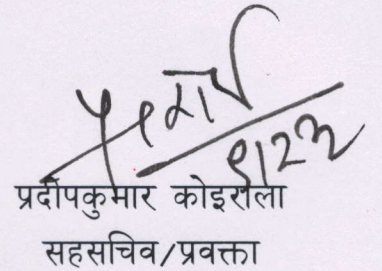 ९।२३
प्रदीपकुमार कोइराला
सहसचिव/प्रवक्ता